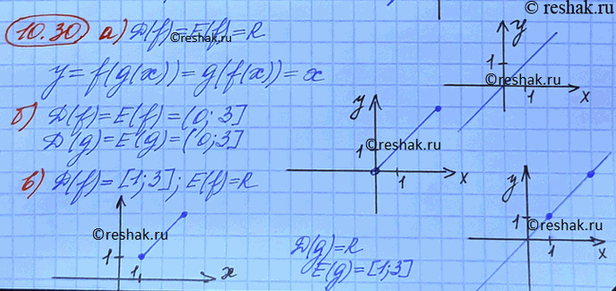 © reshak.ru
10.30 а) D(f)=E(f)=R
©reshak.ru
y=f(g(x))=g(f(x))=x
y
1
1
x
©reshak.ru
б) D(f)=E(f)=(0; 3]
D(g)=E(g)=(0; 3]
y
1
1
x
©reshak.ru
в) D(f)=[1; 3]; E(f)=R
1
1
x
©reshak.ru
D(g)=R
E(g)=[1; 3]
y
1
1
x
©reshak.ru